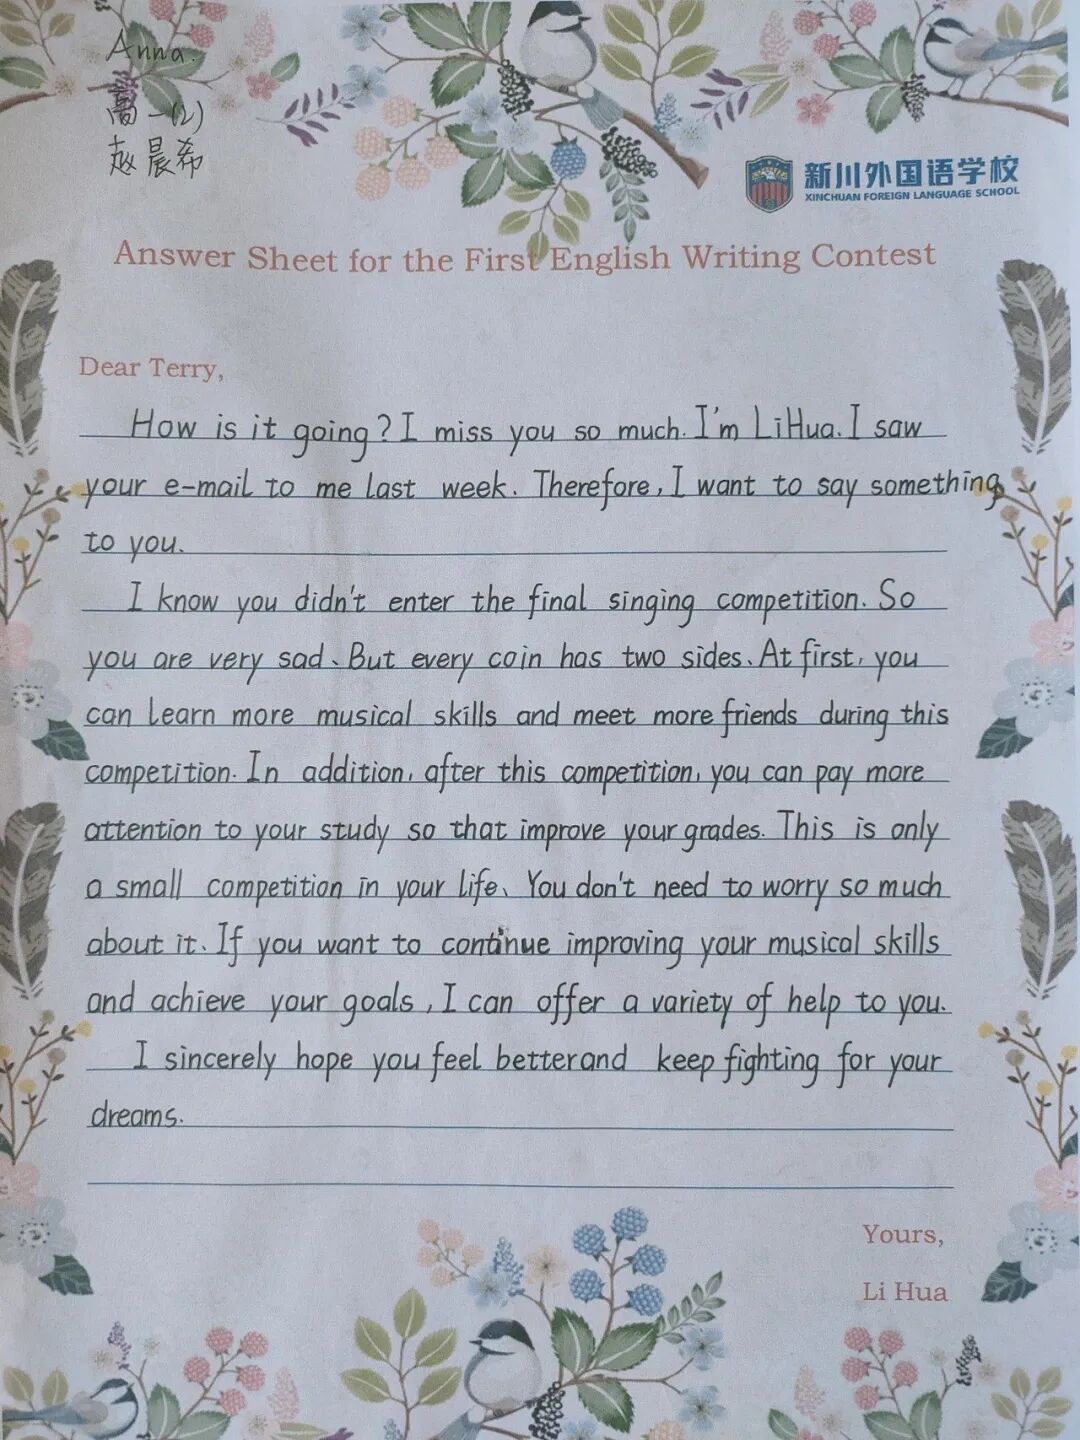 Anna.
高一(2)
赵晨希
新川外国语学校
XINCHUAN FOREIGN LANGUAGE SCHOOL
Answer Sheet for the First English Writing Contest
Dear Terry,
How is it going? I miss you so much. I'm LiHua. I saw
your e-mail to me last week. Therefore, I want to say something
to you.
I know you didn't enter the final singing competition. So
you are very sad. But every coin has two sides. At first, you
can learn more musical skills and meet more friends during this
competition. In addition, after this competition, you can pay more
attention to your study so that improve your grades. This is only
a small competition in your life. You don't need to worry so much
about it. If you want to continue improving your musical skills
and achieve your goals, I can offer a variety of help to you.
I sincerely hope you feel better and keep fighting for your
dreams.
Yours,
Li Hua